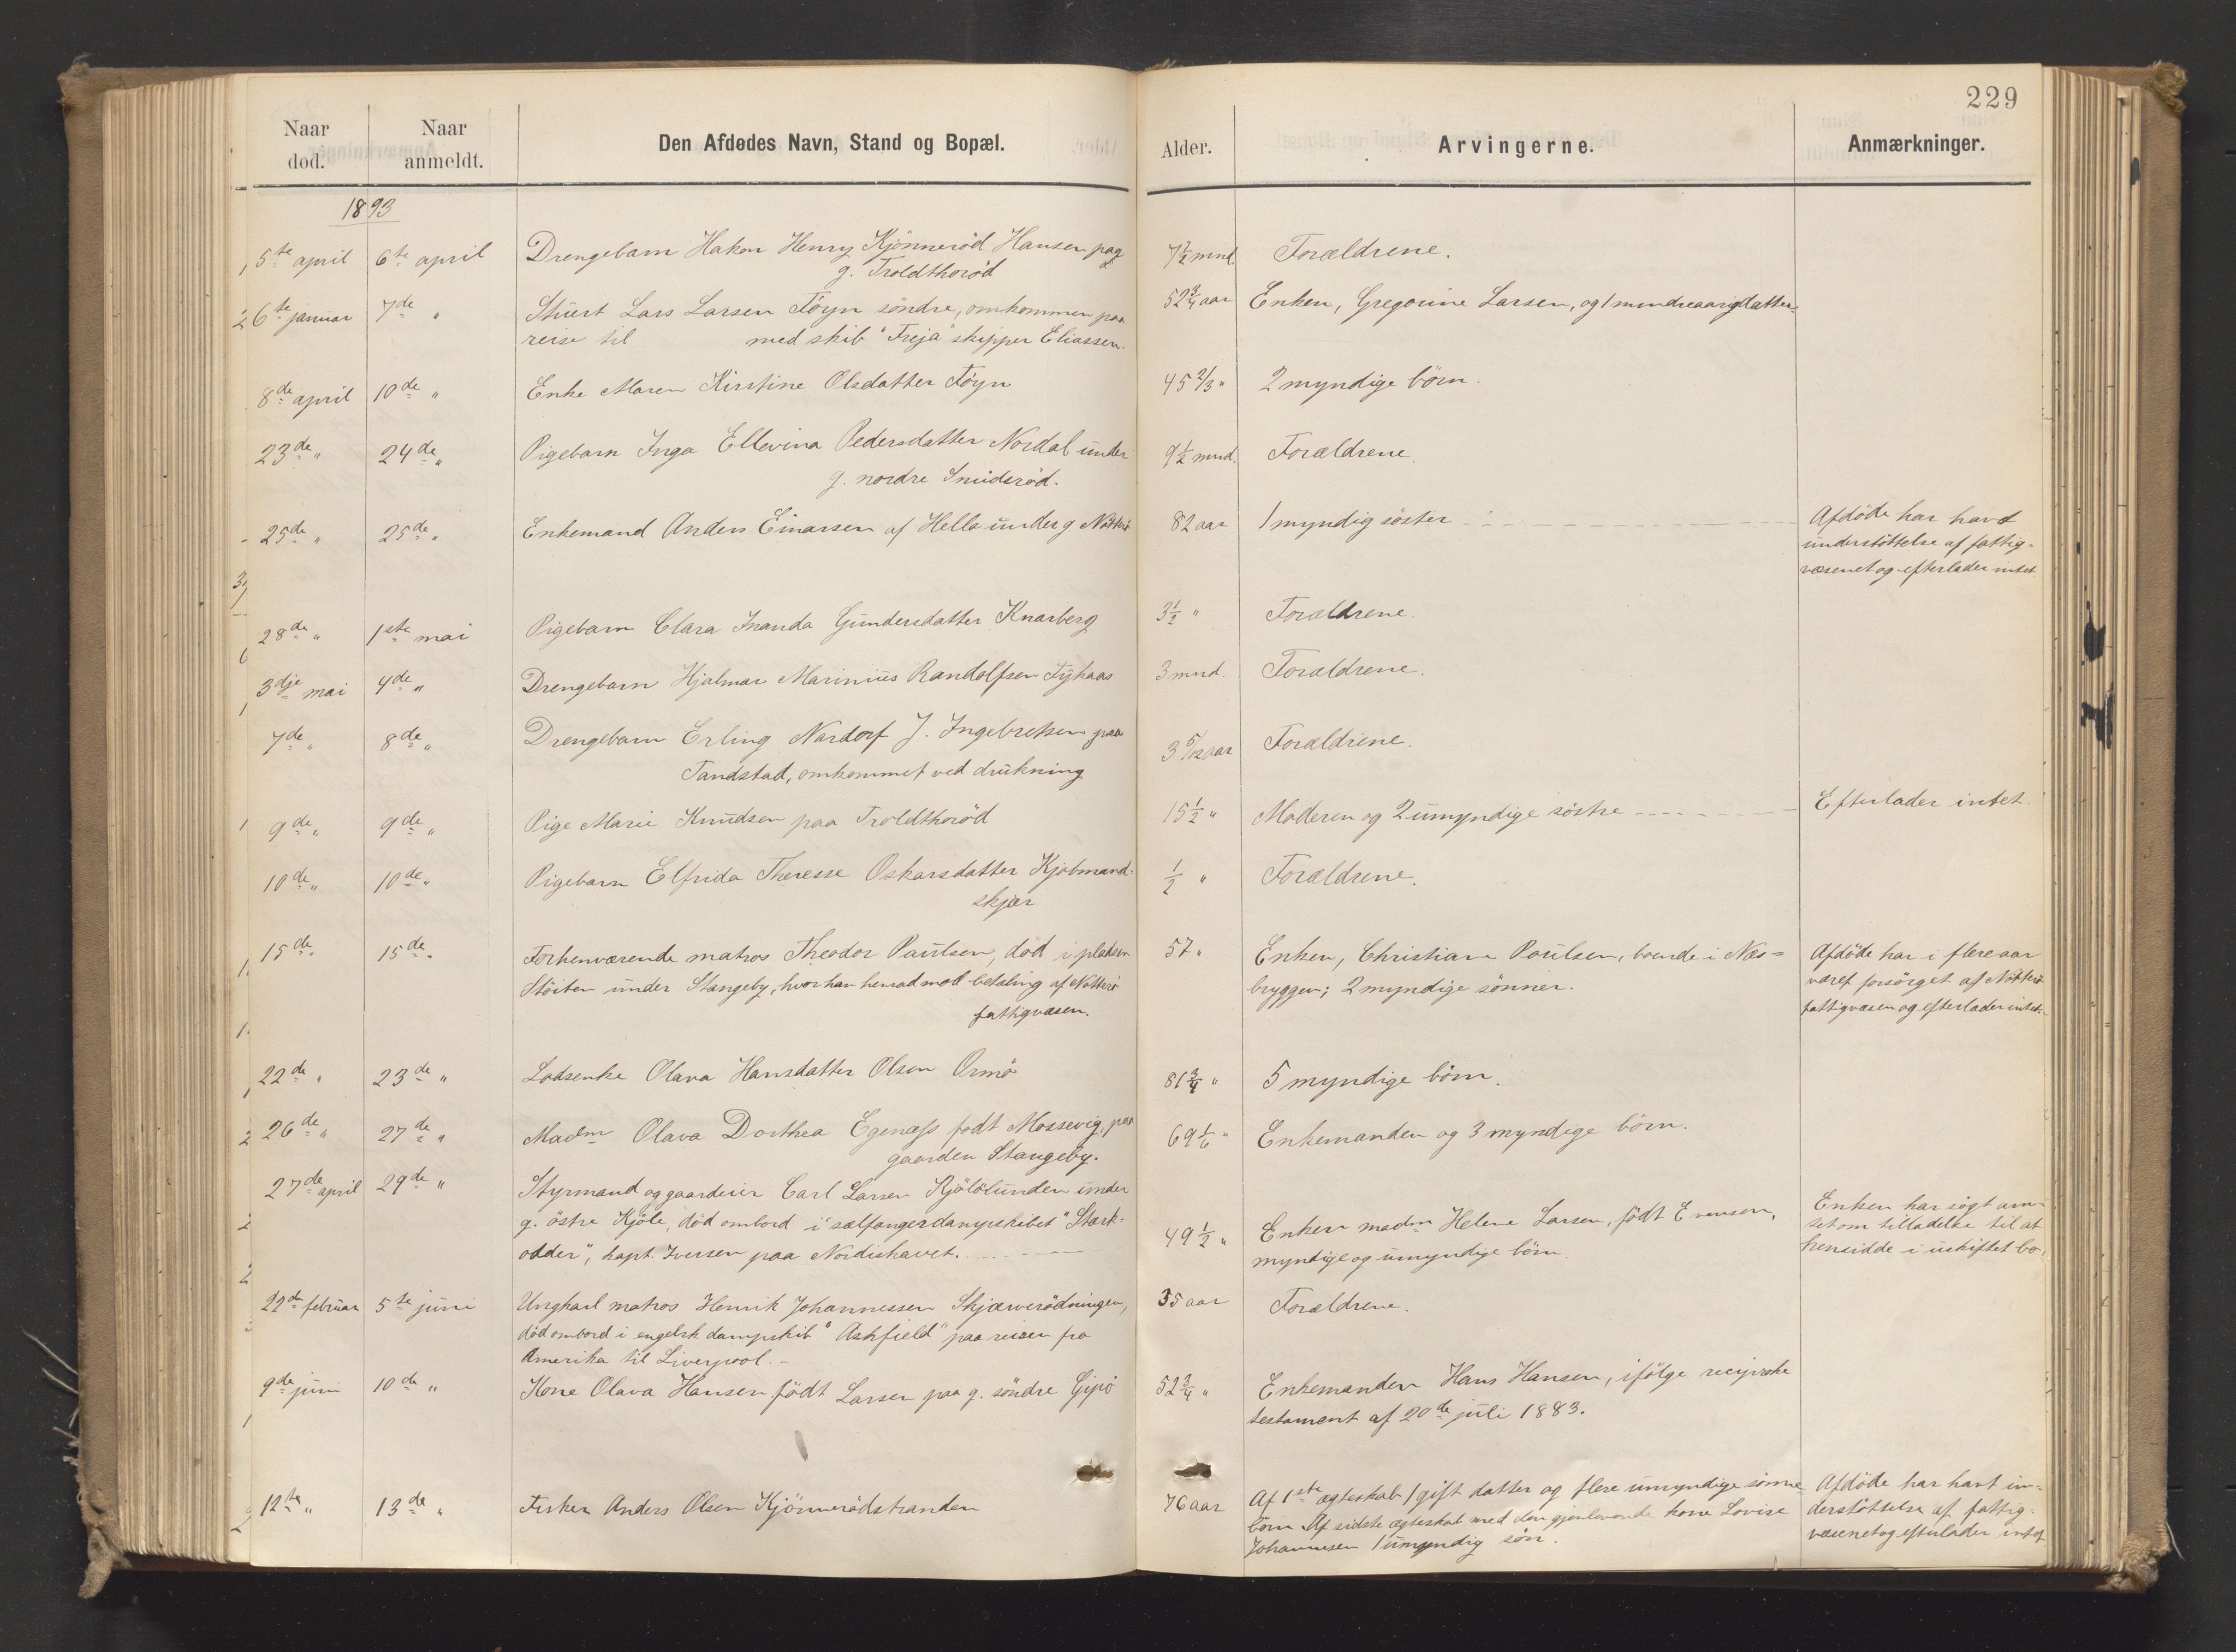 229
Naar død.
Naar anmeldt.
Den Afdødes Navn, Stand og Bopæl.
Alder.
Arvingerne.
Anmærkninger.
1893
5te april 6te april Drengebarn Hakon Henry Kjönnerød Hansen paa 7½ mnd. Forældrene.
g. Troldthorød
6te januar 7de " Stuert Lars Larsen Föyn söndre, omkommen paa 52¾ aar Enken, Gregorine Larsen, og 1 mindreaarig datter.
reise til med skib "Freja" skipper Eliassen.
8de april 10de " Enke Maren Kirstine Olsdatter Föyn 45 2/3 " 2 myndige börn.
23de " 24de " Pigebarn Inga Ellevina Pedersdatter Nordal under 9½ mnd. Forældrene.
g. nordre Smidsröd.
25de " 25de " Enkemand Anders Einarsen af Hella under g Nötterö 82 aar 1 myndig söster Afdöde har havt
understöttelse af fattig-
væsenet og efterlader intet.
28de " 1ste mai Pigebarn Clara Inanda Gundersdatter Knarberg 3½ " Forældrene.
3dje mai 4de " Drengebarn Hjalmar Marinius Randolfsen Fyhaas 3 mnd. Forældrene.
7de " 8de " Drengebarn Erling Nardorf J. Ingebretsen paa 3 5/12 aar Forældrene.
Tandstad, omkommet ved drukning
9de " 9de " Pige Marie Knudsen paa Troldthoröd 15½ " Moderen og 2 umyndige söstre Efterlader intet.
10de " 10de " Pigebarn Elfrida Theresse Oskarsdatter Kjöbmand- ½ " Forældrene.
skjær
15de " 15de " Forhenværende matros Theodor Paulsen, död i pladsen 57 " Enken, Christiane Paulsen, boende i Næs= Afdöde har i flere aar
Stöiten under Stangeby, hvor han hensad mod betaling af Nötterö bryggen; 2 myndige sönner. været forsörget af Nötterö
fattigvæsen. fattigvæsen og efterlader intet.
22de " 23de " Lodsenke Olava Hansdatter Olsen Ormö 81¾ " 5 myndige börn.
26de " 27de " Madm Olava Dorthea Egenæss födt Mossevig, paa 69 1/6 " Enkemanden og 3 myndige börn.
gaarden Stangeby.
27de april 29de " Styrmand og gaardeier Carl Larsen Kjölölunden under
g. östre Kjöle, död ombord i sælfangerdampskibet "Stærk-
odder", kapt. Iversen paa Nordishavet.
49½ " Enken madm Helene Larsen, födt Evensen,
myndige og umyndige börn.
Enken har sögt am-
tet om tilladelse til at
hensidde i uskiftet bo.
22de februar 5te juni Ungkarl matros Henrik Johannessen Skjærverödningen, 35 aar Forældrene.
död ombord i engelsk dampskib "Ashfield" paa reisen fra
Amerika til Liverpool.
9de juni 10de " Kone Olava Hansen födt Larsen paa g. söndre Gipö 52¾ " Enkemanden Hans Hansen, ifölge reciproke
testament af 20de juli 1883.
12te " 13de " Fisker Anders Olsen Kjönnerödstranden 76 aar Af 1ste ægteskab 1 gift datter og flere umyndige sönne
börn. Af sidste ægteskab med den gjenlevende kone Lovise
Johannesen 1 umyndig sön.
Afdöde har havt un-
derstöttelse af fattig-
væsenet og efterlader intet